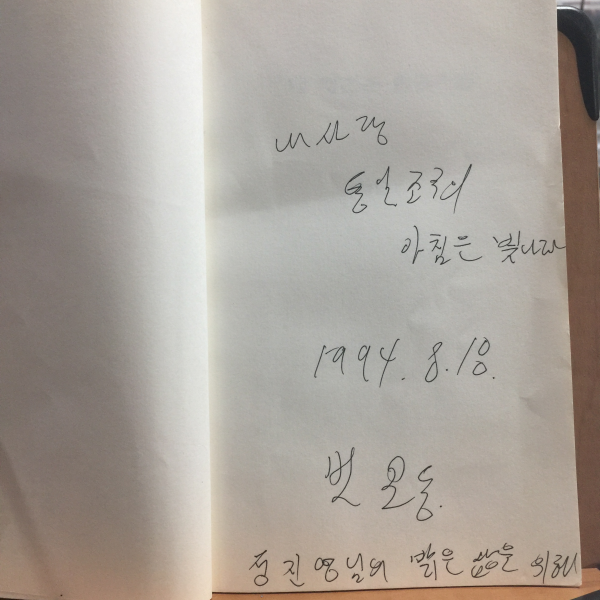 내 사랑
통일 조국의
아침은 빛나라
1994. 8. 18.
벗 오동.
정진영님의 맑은 삶을 위해